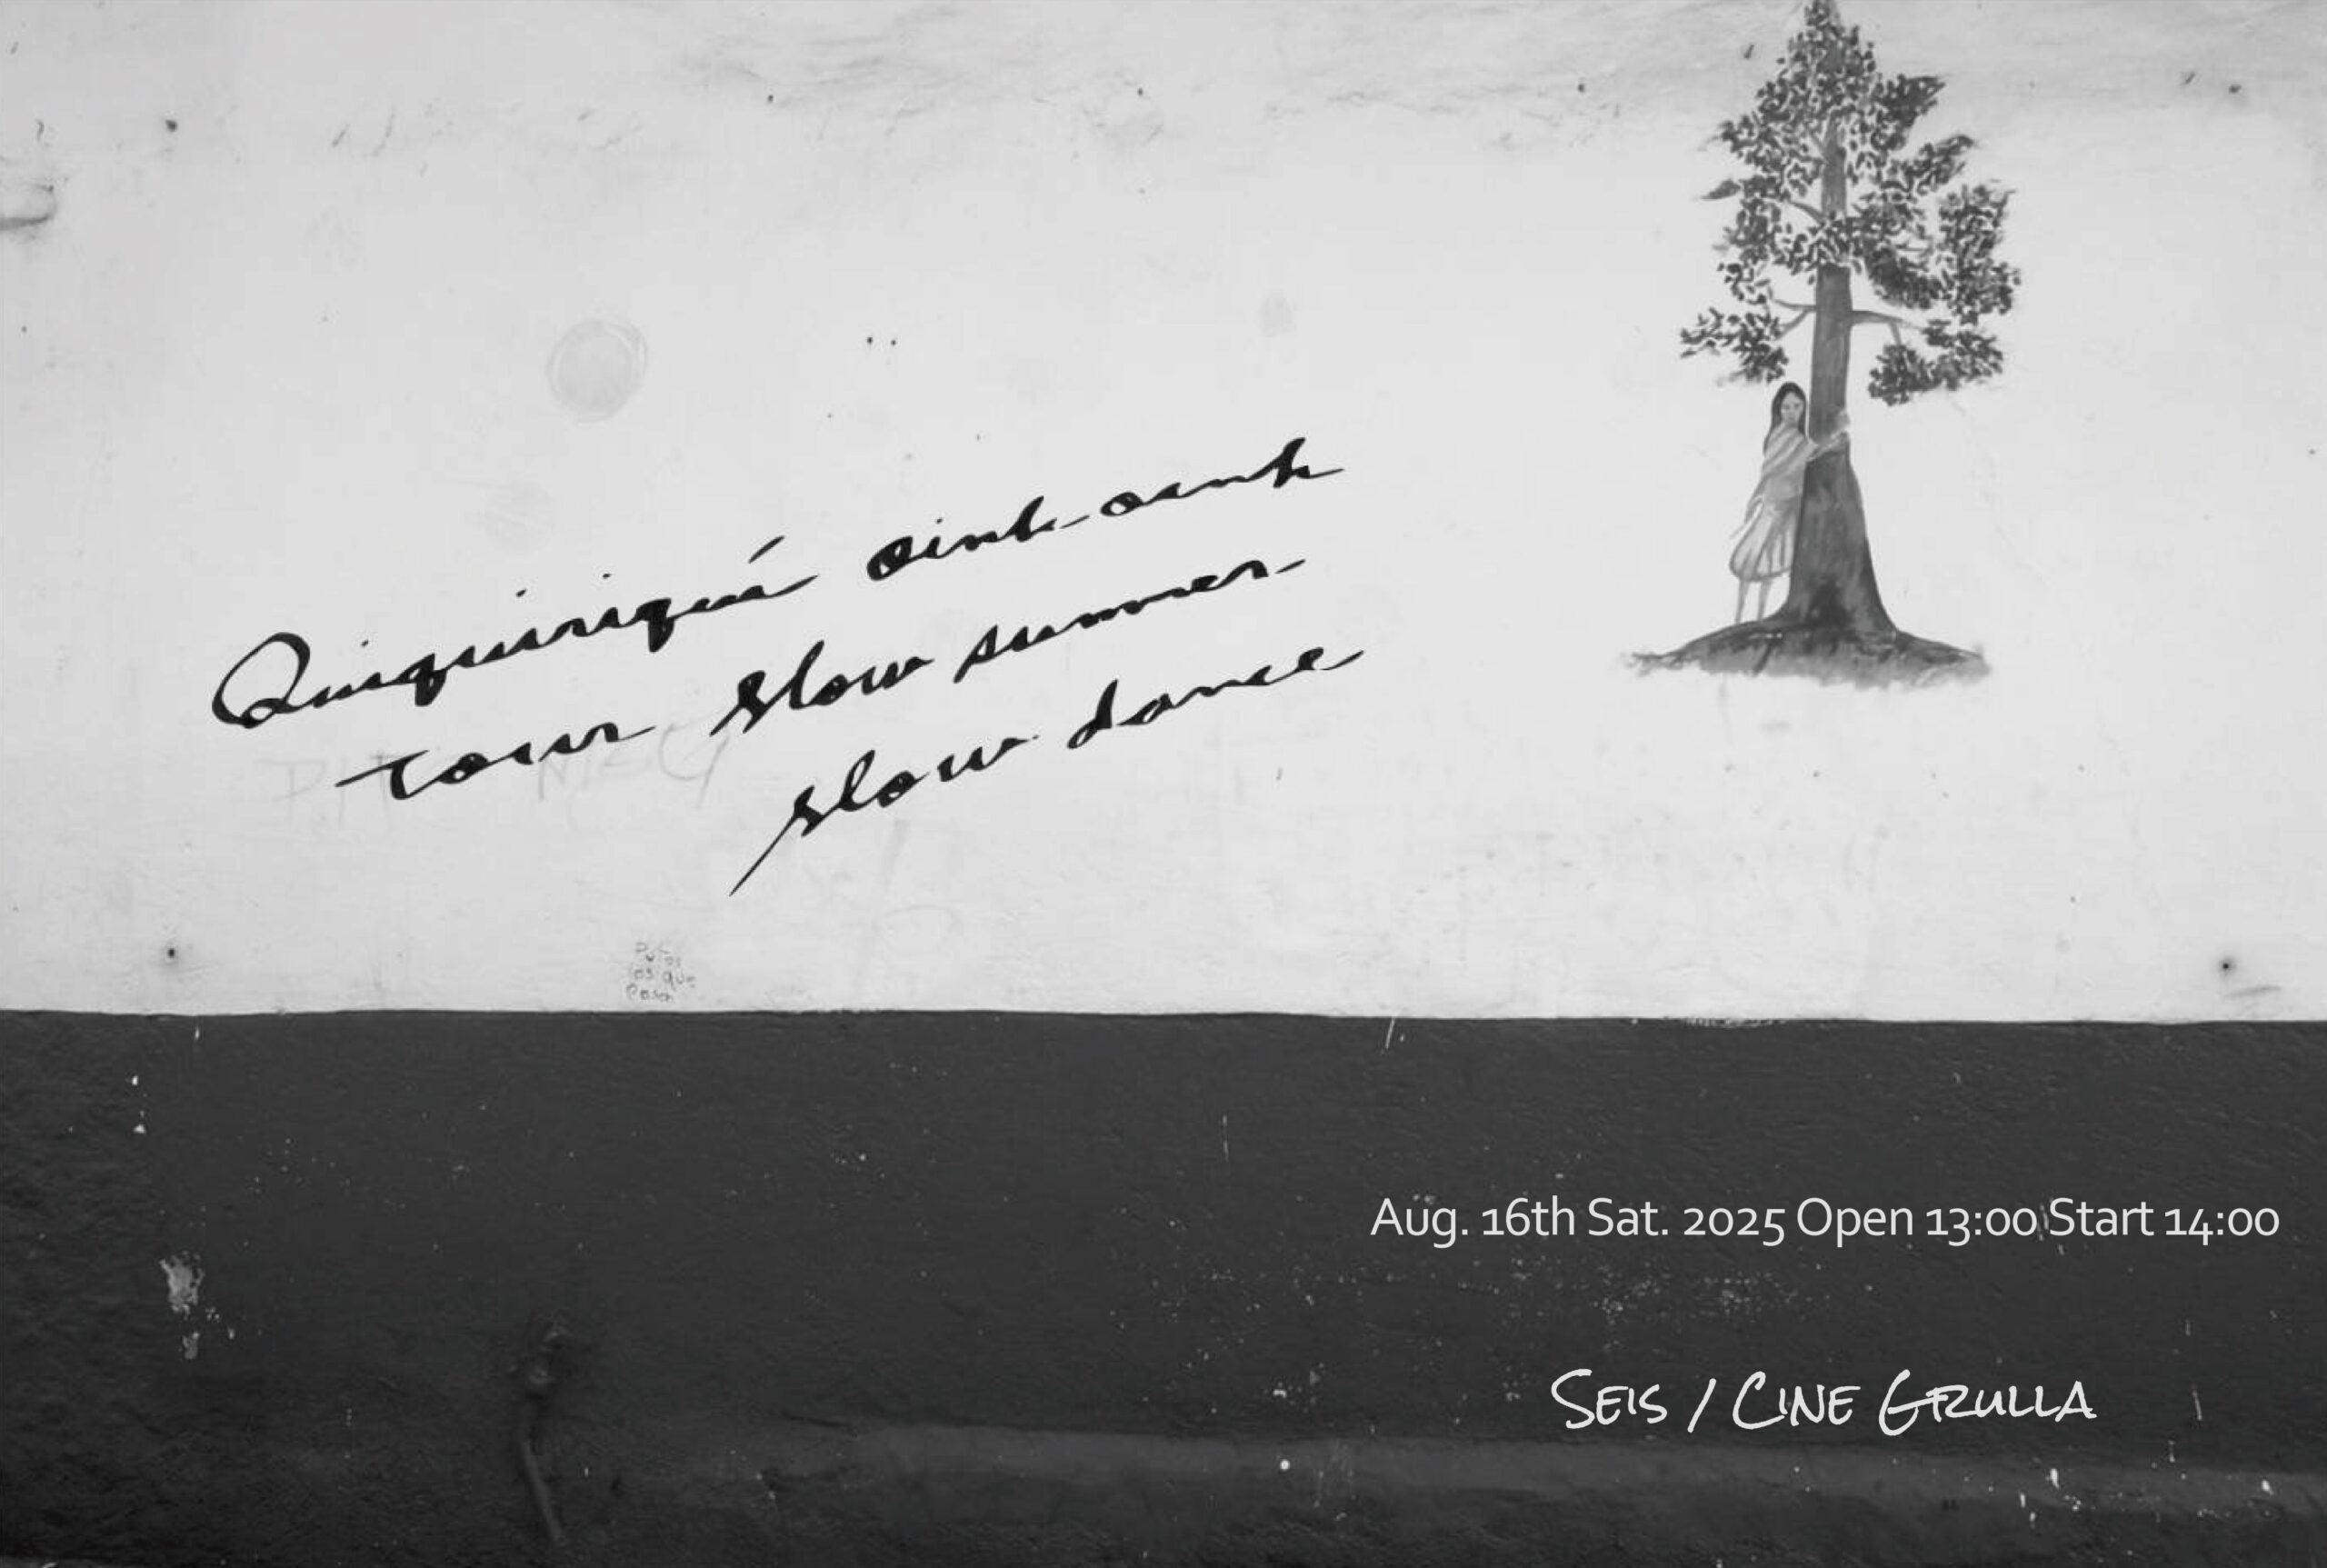 Quiquiriquí oink-oink
tour slow summer
slow dance
Putos
los que
Pasen
Aug. 16th Sat. 2025 Open 13:00 Start 14:00
SEIS / CINE GRULLA